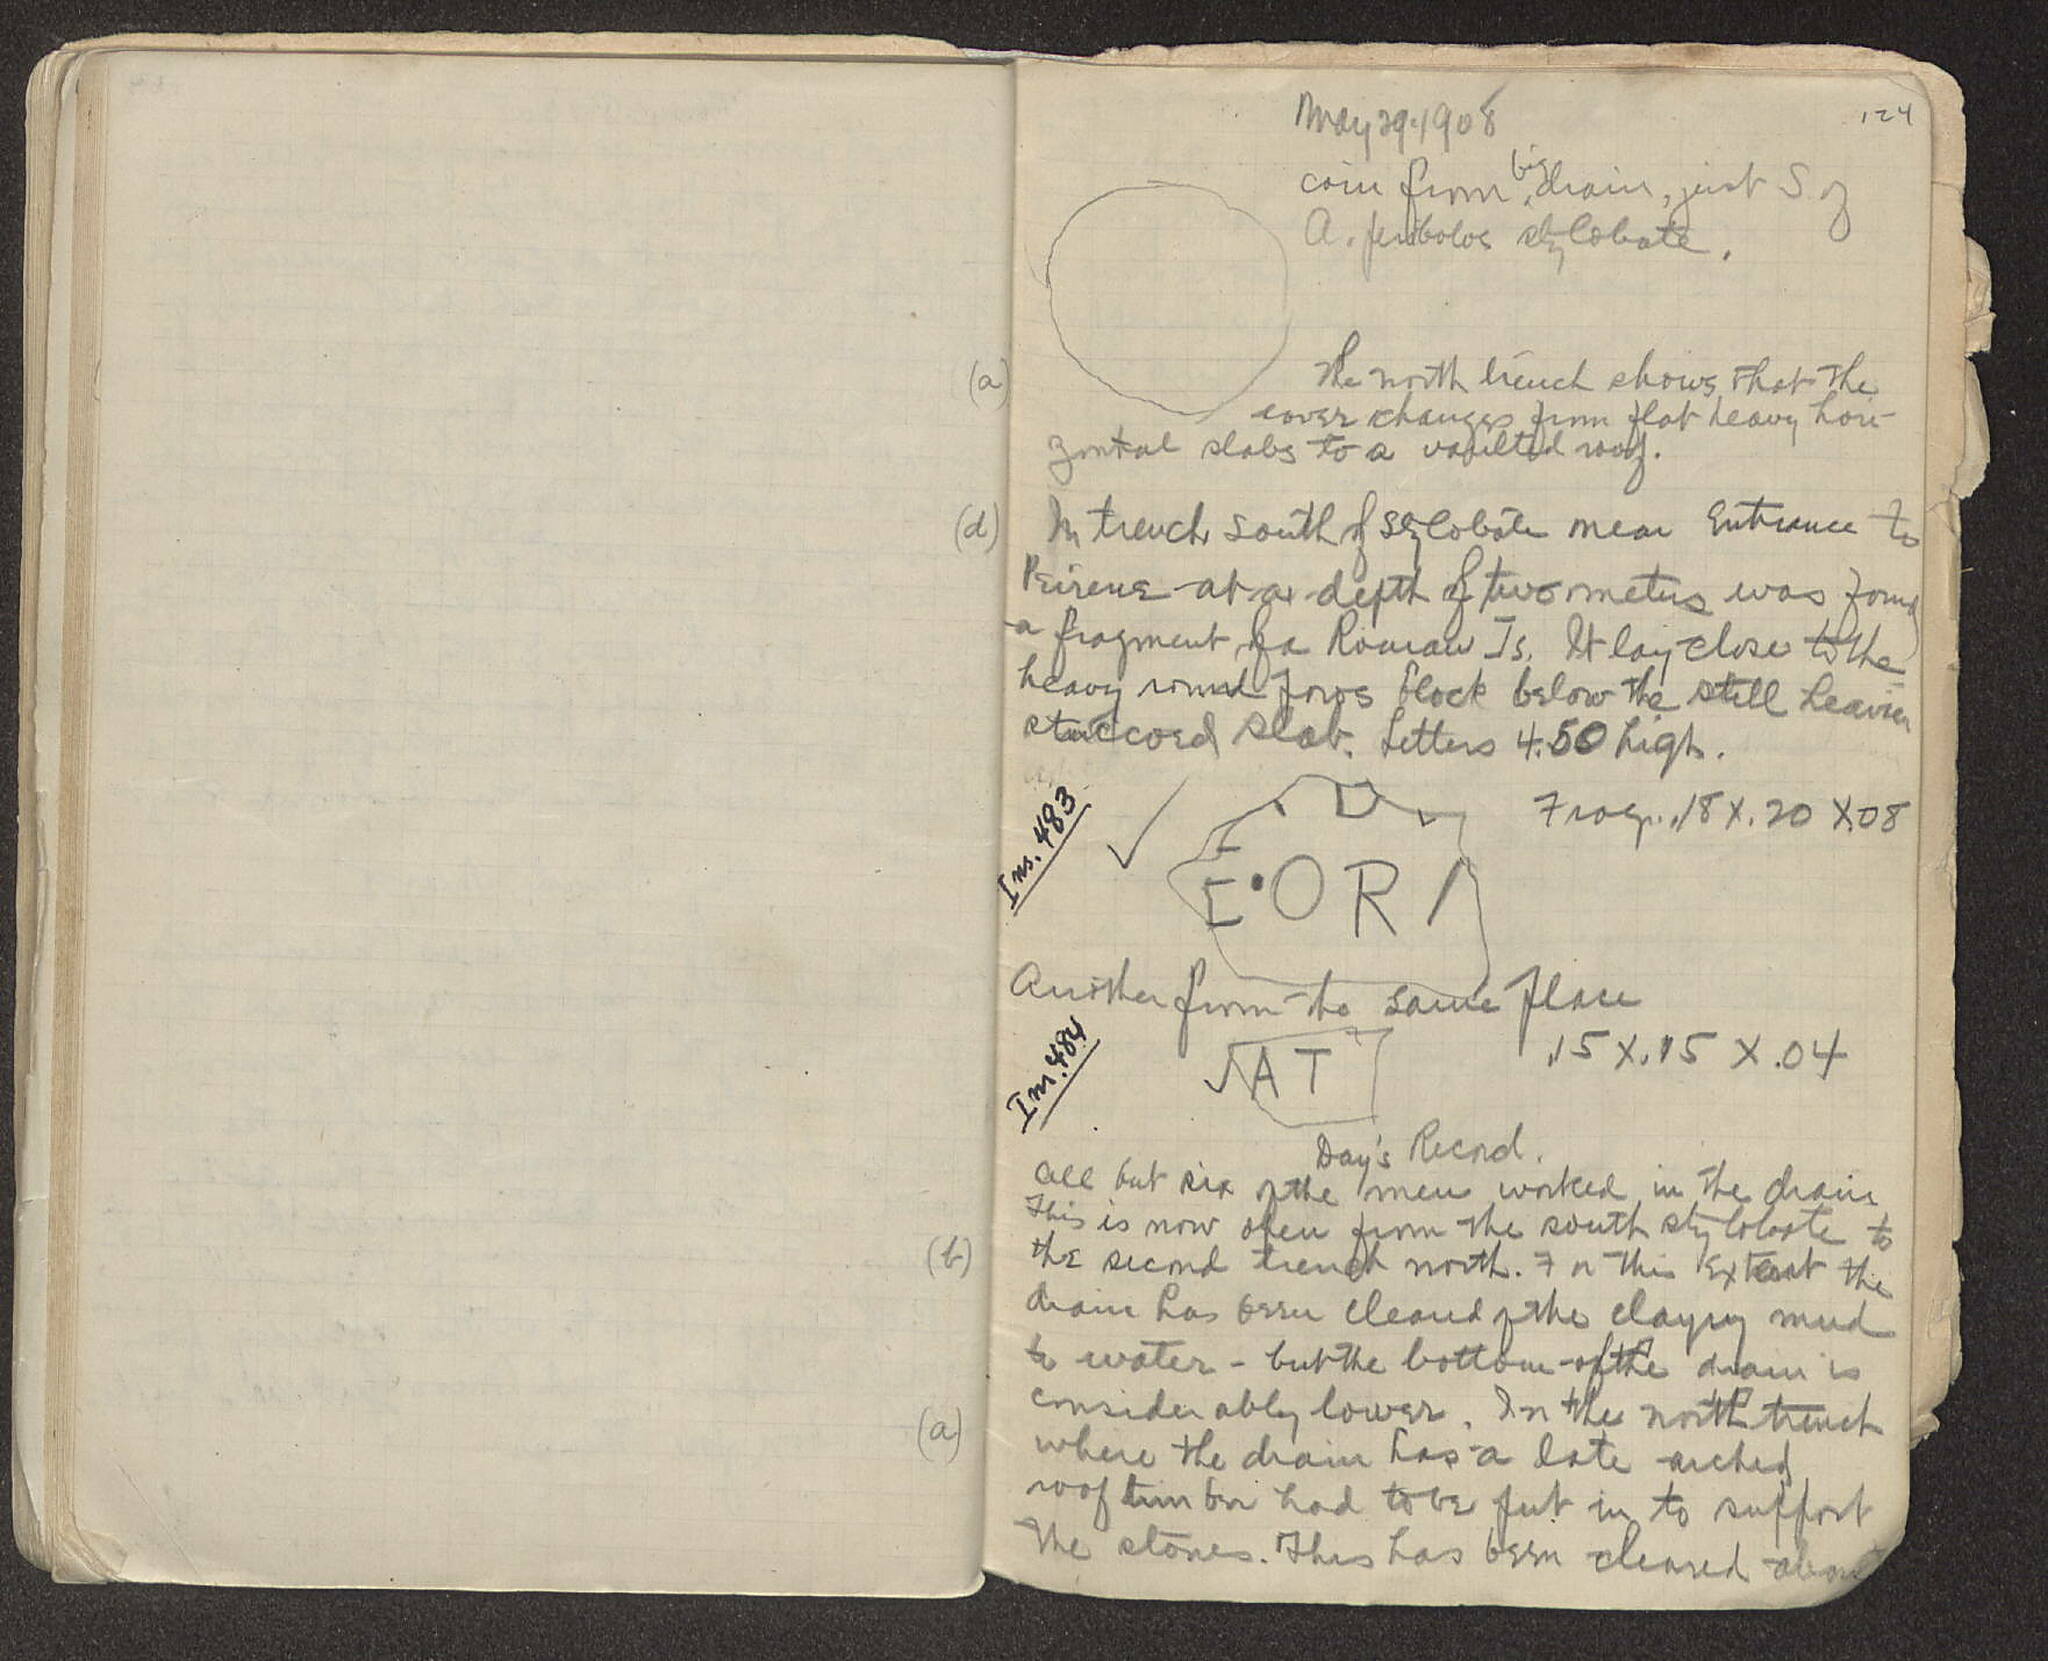 124
May 29. 1908
coin from big drain, just S. of
A. peribolos stylobate.
(a) The north trench shows that the
cover changes from flat heavy hori-
zontal slabs to a vaulted roof.
(d) In trench south of stylobate near Entrance to
Peirene at a depth of two meters was found
a fragment of a Roman Is. It lay close to the
heavy round poros block below the still heavier
stuccoed slab. Letters 4.50 high.
Ins. 483
Frag. .18 X .20 X .08
E·OR
Another from the same place
Ins. 484
.15 X .15 X .04
AT
Day's Record.
All but six of the men worked in the drain
This is now open from the south stylobate to
(b) the second trench north. For this extent the
drain has been cleared of the clayey mud
to water - but the bottom of the drain is
considerably lower. In the north trench
(a) where the drain has a late arched
roof timber had to be put in to support
the stones. This has been cleared about